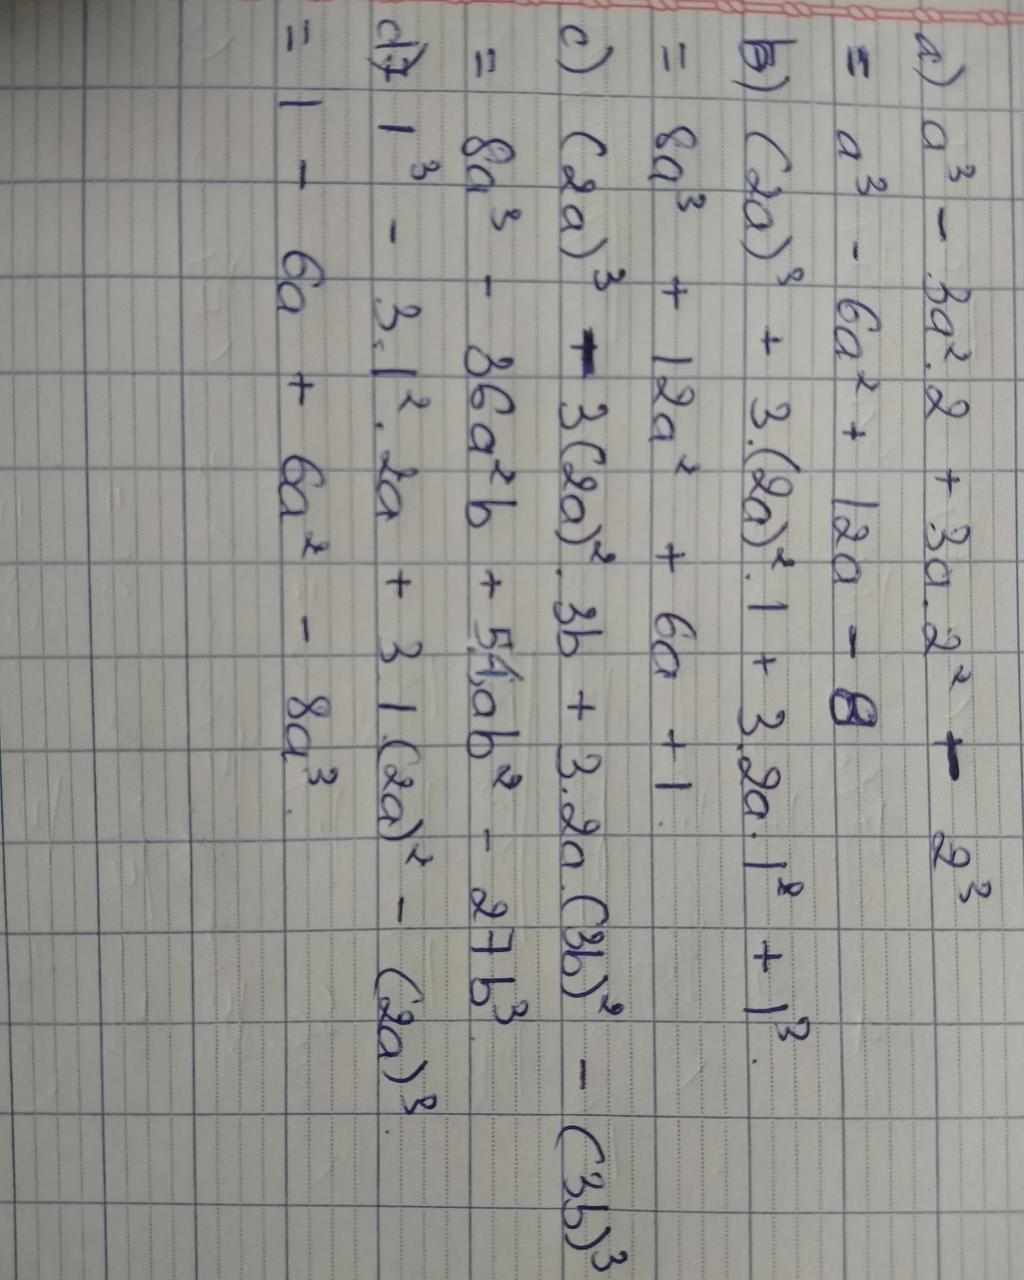 a) a³ - 3a².2 + 3a.2² - 2³
= a³ - 6a² + 12a - 8
b) (2a)³ + 3.(2a)².1 + 3.2a.1² + 1³.
= 8a³ + 12a² + 6a + 1.
c) (2a)³ - 3(2a)².3b + 3.2a.(3b)² - (3b)³
= 8a³ - 36a²b + 54ab² - 27b³.
d) 1³ - 3.1².2a + 3.1.(2a)² - (2a)³.
= 1 - 6a + 6a² - 8a³.